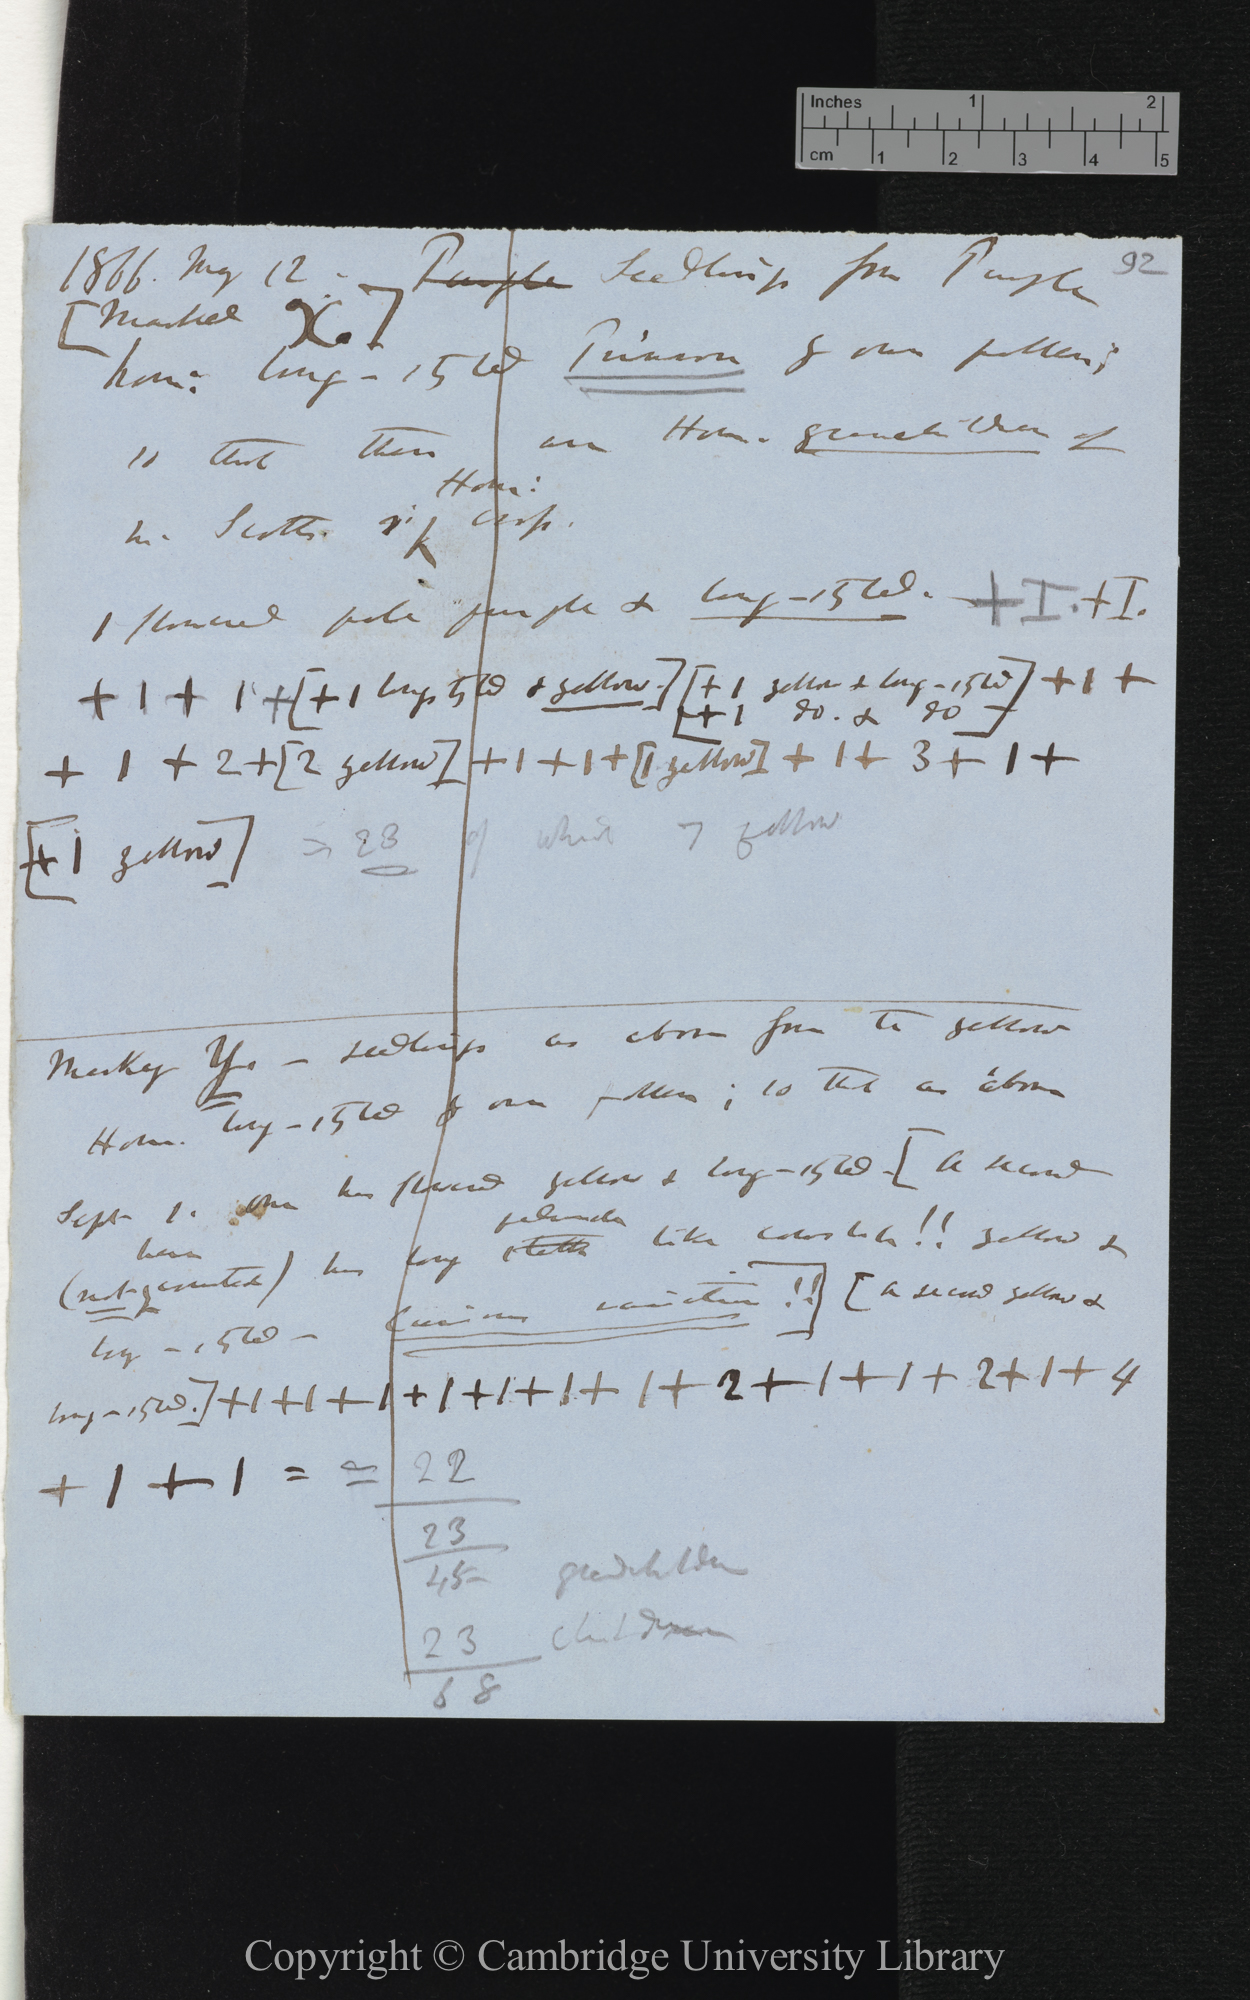 Inches 1 2
cm 1 2 3 4 5
92
1866. May 12 - Purple Seedlings from Purple
[Marked X.]
hom: long-styled Primrose & own pollen;
so that these are Hom. grandchildren of
Hom:
Mr. Scott's. cross.
1 flowered pale purple & long-styled. + I. + I.
+ 1 + 1 + [+ 1 long-styled & yellow.] [+ 1 yellow & long-styled] + 1 +
+ 1 do. & do
+ 1 + 2 + [2 yellow] + 1 + 1 + [1 yellow] + 1 + 3 + 1 +
[+ 1 yellow] = 23 of which 7 yellow
Marked Y. - seedlings as above from the yellow
Hom. long-styled & own pollen; so that as above
Sept 1. one has flowered yellow & long-styled - [a second
here peduncle
(not counted) has long stalk like cowslip!! yellow &
long-styled - Curious variation!!] [a second yellow &
long-styled.] + 1 + 1 + 1 + 1 + 1 + 1 + 1 + 2 + 1 + 1 + 2 + 1 + 4
+ 1 + 1 = = 22
23
45 grandchildren
23 children
68
Copyright © Cambridge University Library